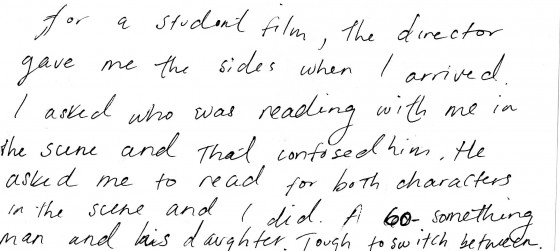 for a student film, the director
gave me the sides when I arrived.
I asked who was reading with me in
the scene and that confosed him. He
asked me to read for both characters
in the scene and I did. A 60-something
man and his daughter. Tough to switch between.